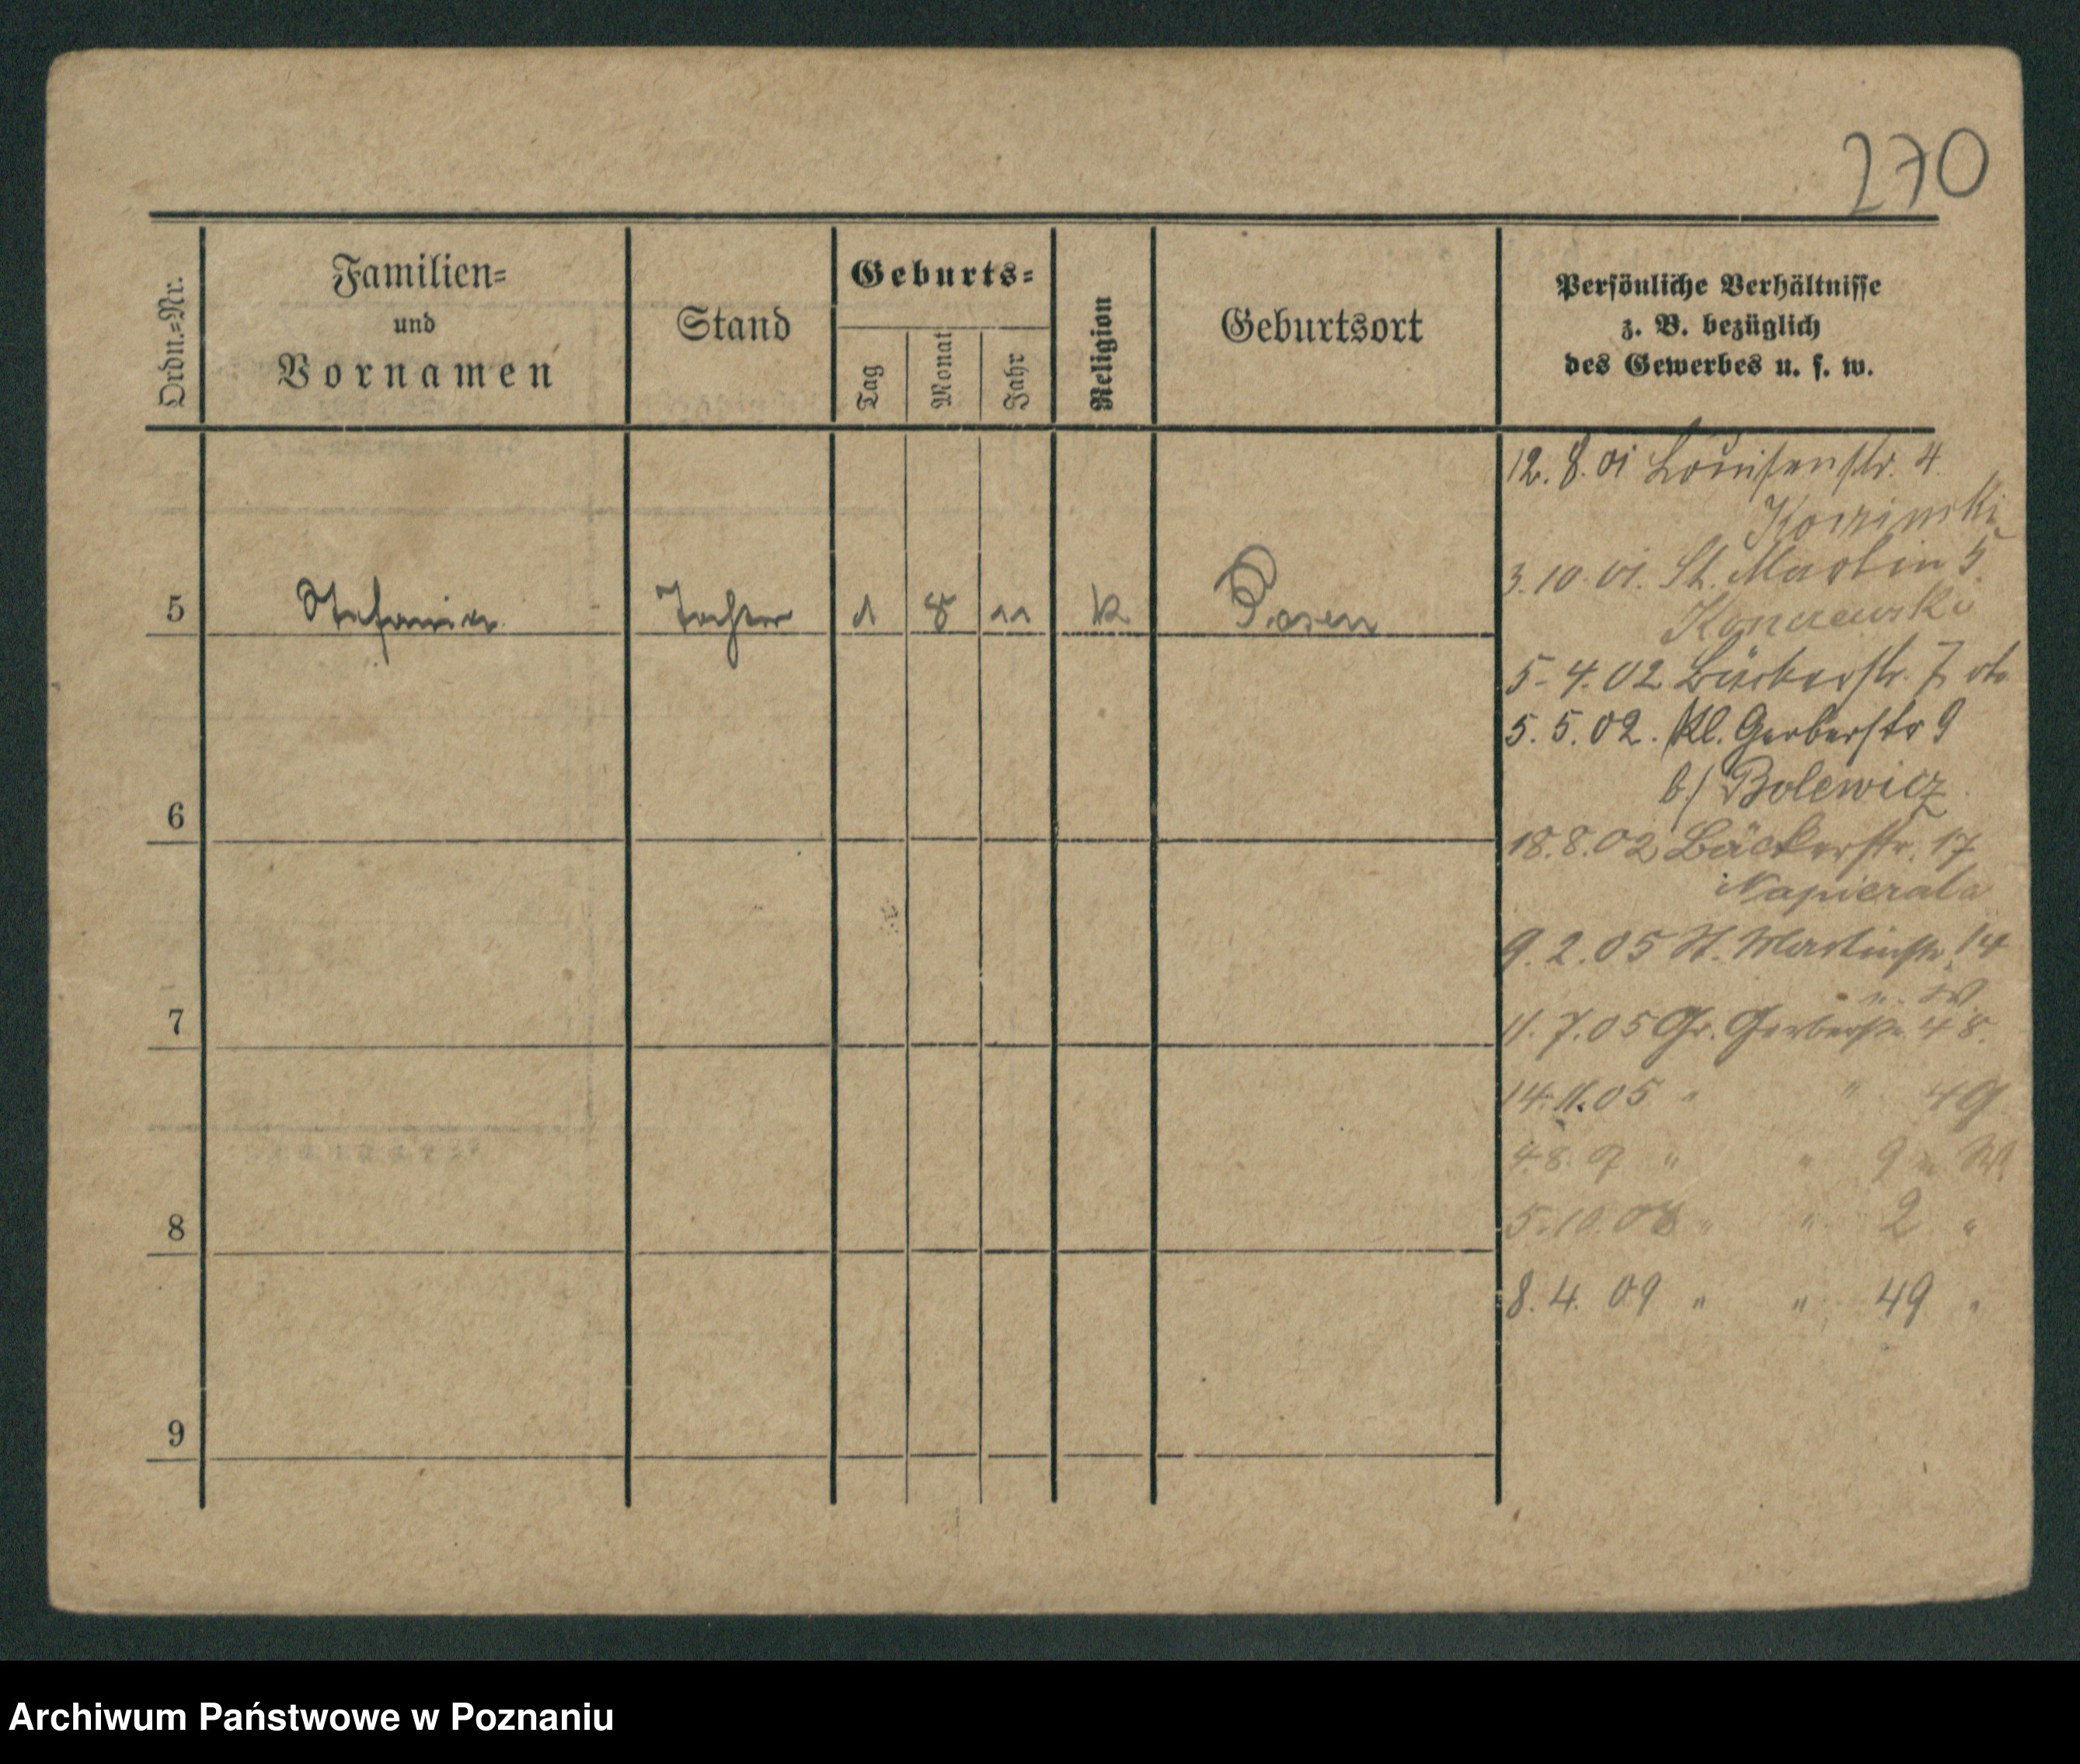 270
Ordn.-Nr.
Familien-
und
Vornamen
Stand
Geburts-
Tag
Monat
Jahr
Religion
Geburtsort
Persönliche Verhältnisse
z. B. bezüglich
des Gewerbes u. s. w.
12. 8. 01 Louisenstr. 4
3. 10. 01. St. Martin 5
5 Stefania Tochter 1 8 11 k Posen
5. 4. 02 Bäckerstr. 7
5. 5. 02. Kl. Gerberstr 9
b/ Bolewicz
6
18. 8. 02 Bäckerstr. 17
Napierala
9. 2. 05 St. Martinstr. 14
7
11. 7. 05 Gr. Gerberstr. 48.
14. 11. 05 " " 49
" " 9
8
5. 10. 08 " " 2 "
8. 4. 09 " " 49 "
9
Archiwum Państwowe w Poznaniu